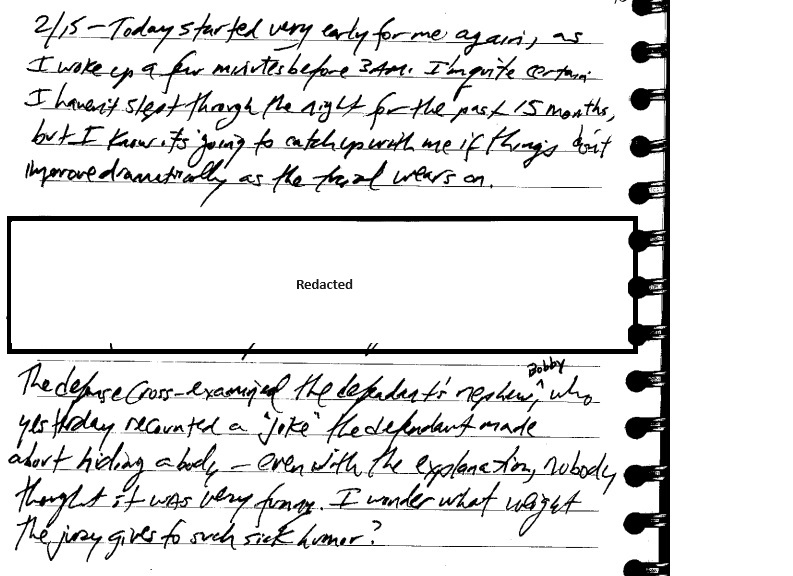 2/15 - Today started very early for me again, as
I woke up a few minutes before 3AM. I'm quite certain
I haven't slept through the night for the past 15 months,
but I know it's going to catch up with me if things don't
improve dramatically as the trial wears on.
Redacted
The defense cross-examined the defendant's nephew, ^Bobby who
yesterday recounted a "joke" the defendant made
about hiding a body - even with the explanation, nobody
thought it was very funny. I wonder what weight
the jury gives to such sick humor?